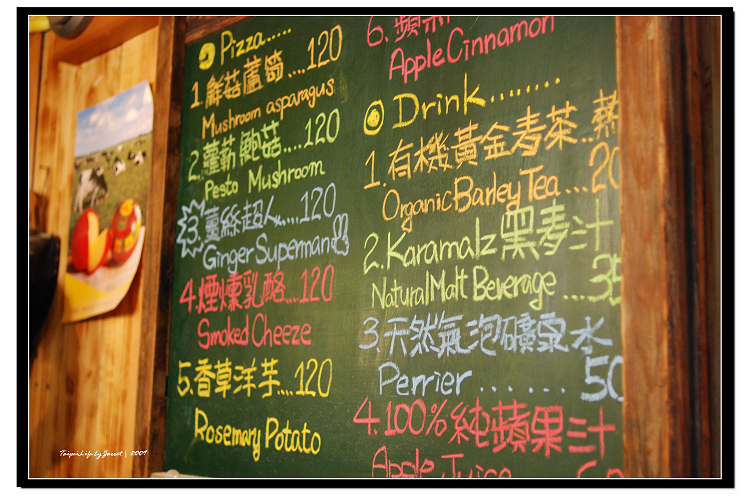 Pizza.....
1 鮮菇蘆筍....120
Mushroom asparagus
2. 蘿勒鮑菇....120
Pesto Mushroom
3. 薑絲超人.....120
Ginger Superman
4. 煙燻乳酪....120
Smoked Cheeze
5. 香草洋芋....120
Rosemary Potato
6. 蘋
Apple Cinnamon
Drink........
1. 有機黃金麥茶..熱
Organic Barley Tea...20
2. Karamalz 黑麥汁
Natural Malt Beverage ....35
3. 天然氣泡礦泉水
Perrier .......50
4. 100% 純蘋果汁
Apple Juice
Taipei Life by Jarrot | 2009